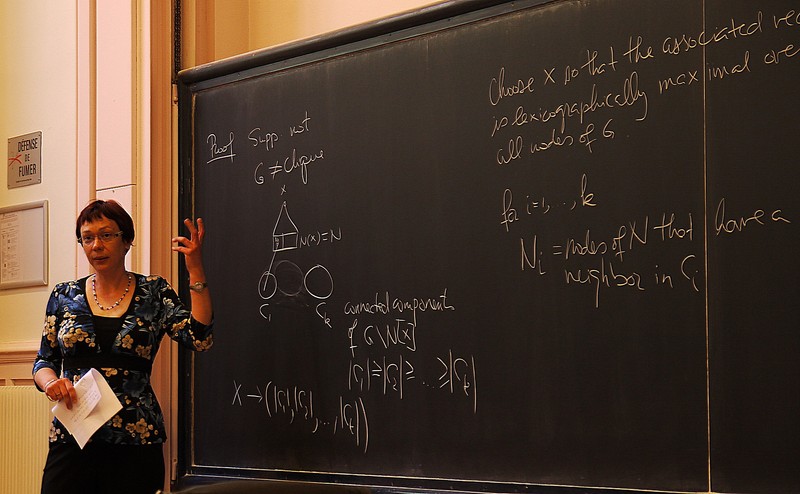 DÉFENSE
DE
FUMER
Proof Supp. not
G ≠ clique
x
N(x) = N
C₁ Cₖ
connected components
of G\N[x]
|C₁| ≥ |C₂| ≥ ... ≥ |Cₖ|
X → (|C₁|, |C₂|, ..., |Cₖ|)
Choose X so that the associated
is lexicographically maximal over
all nodes of G.
for i=1, .., k
Nᵢ = nodes of N that have a
neighbor in Cᵢ